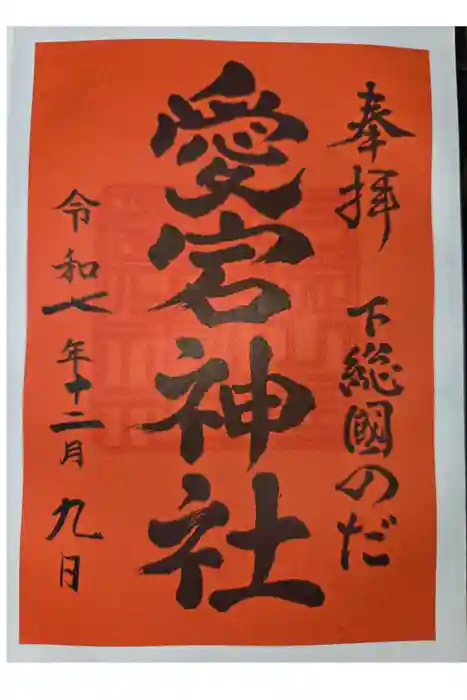 奉拝 下総國のだ
愛宕神社
令和七年十二月九日